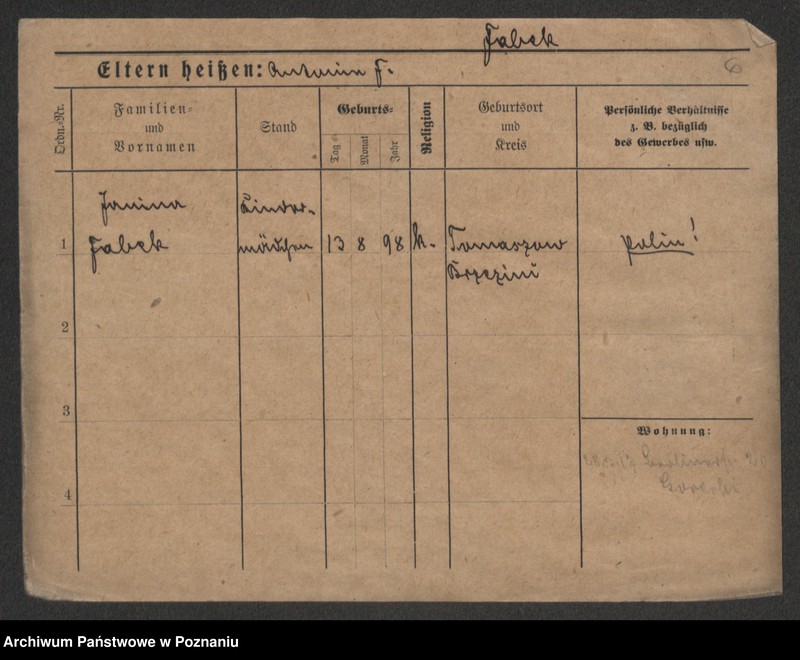 Fabek
Eltern heißen: Antonina F.
6
Ordn.-Nr.
Familien-
und
Vornamen
Stand
Geburts-
Tag
Monat
Jahr
Religion
Geburtsort
und
Kreis
Persönliche Verhältnisse
z. B. bezüglich
des Gewerbes usw.
Janina
Kinder-
1 Fabek mädchen 13 8 98 k. Tomaszow
Brzezini
Polin!
2
3
Wohnung:
4
Archiwum Państwowe w Poznaniu